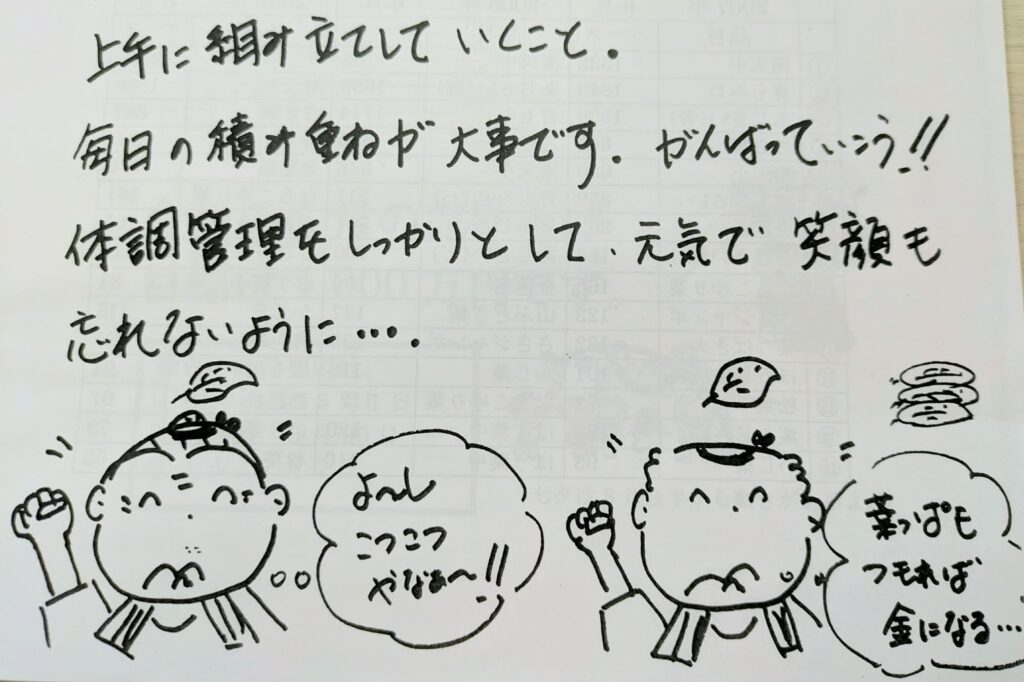 上午に組み立てしていくこと。
毎日の積み重ねが大事です。がんばっていこう!!
体調管理をしっかりとして、元気で笑顔も
忘れないように…。
よ〜し
こつこつ
やなぁ〜!!
葉っぱも
つもれば
金になる…